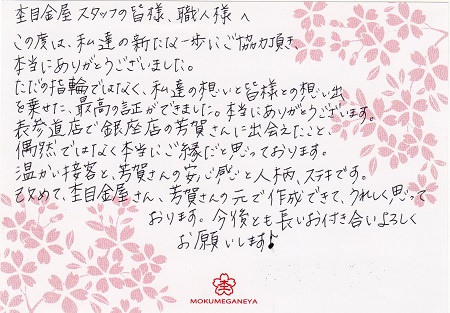 杢目金屋スタッフの皆様、職人様へ
この度は、私達の新たな一歩にご協力頂き、
本当にありがとうございました。
ただの指輪ではなく、私達の想いと皆様との想い出
を乗せた、最高の証ができました。本当にありがとうございます。
表参道店で銀座店の芳賀さんに出会えたこと、
偶然ではなく本当にご縁だと思っております。
温かい接客と、芳賀さんの安心感と人柄、ステキです。
改めて、杢目金屋さん、芳賀さんの元で作成できて、うれしく思って
おります。今後とも長いお付き合いよろしく
お願いします♪
杢
MOKUMEGANEYA